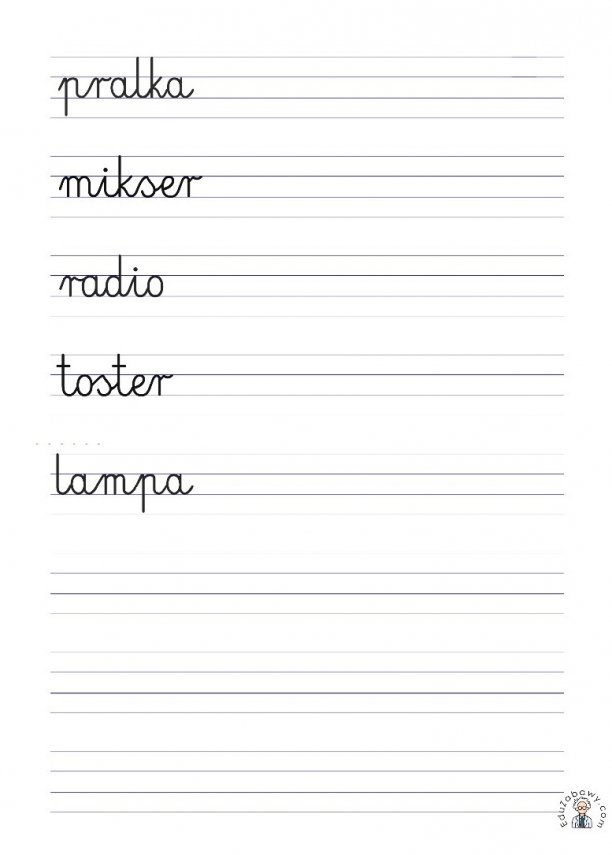 pralka
mikser
radio
toster
lampa
eduzabawy.com